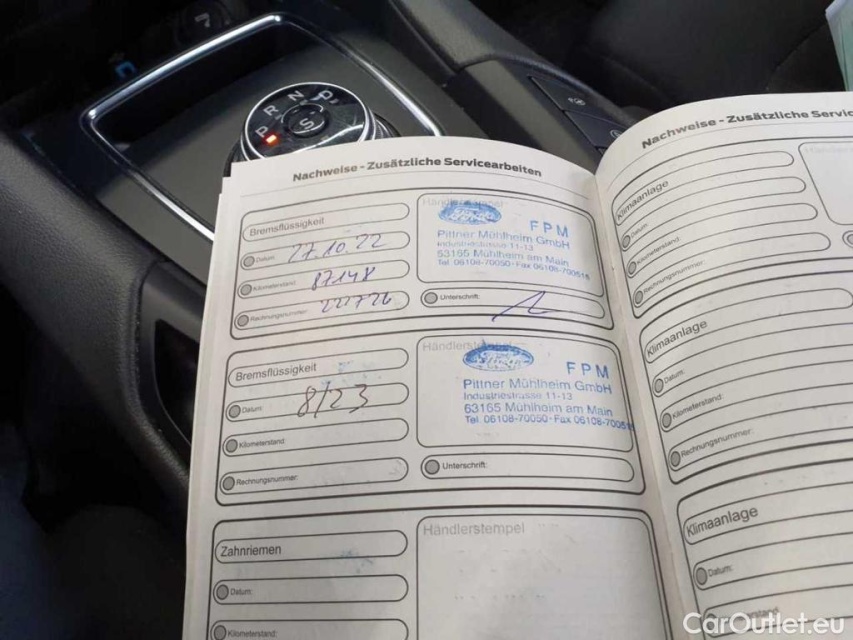 P R N D
S
Nachweise - Zusätzliche Servicearbeiten
Bremsflüssigkeit
Datum: 27.10.22
Kilometerstand: 87148
Rechnungsnummer:
Händlerstempel
Ford
FPM
Pittner Mühlheim GmbH
Industriestrasse 11-13
63165 Mühlheim am Main
Tel. 06108-70050-Fax 06108-700515
Unterschrift:
Bremsflüssigkeit
Datum: 8/23
Kilometerstand:
Rechnungsnummer:
Händlerstempel
FPM
Pittner Mühlheim GmbH
Industriestrasse 11-13
63165 Mühlheim am Main
Tel. 06108-70050-Fax
Unterschrift:
Zahnriemen
Datum:
Kilometerstand:
Händlerstempel
Nachweise - Zusätzliche Servic
Klimaanlage
Datum:
Kilometerstand:
Rechnungsnummer:
Klimaanlage
Datum:
Kilometerstand:
Rechnungsnummer:
Klimaanlage
Datum:
CarOutlet.eu